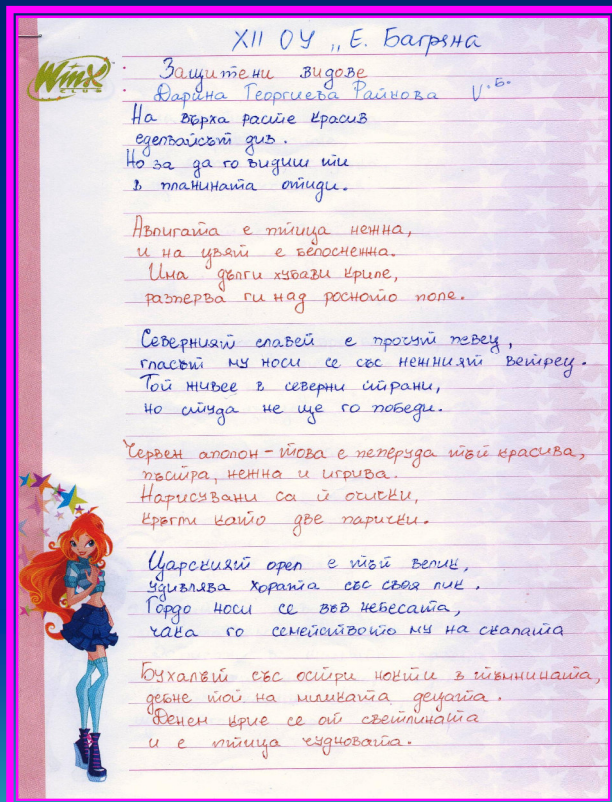 XII ОУ „Е. Багряна
WinX
CLUB
Защитени видове
Дарина Георгиева Райнова V.б.
На върха расте красив
еделвайсът див.
Но за да го видиш ти
в планината отиди.
Авлигата е птица нежна,
и на цвят е белоснежна.
Има дълги хубави криле,
разперва ги над росното поле.
Северният славей е прочут певец,
гласът му носи се със нежният ветрец.
Той живее в северни страни,
но студа не ще го победи.
Червен аполон - това е пеперуда тъй красива,
пъстра, нежна и игрива.
Нарисувани са ѝ очички,
кръгли като две парички.
Царският орел е тъй велик,
удивлява хората със своя лик.
Гордо носи се във небесата,
чака го семейството му на скалата
Бухалът със остри нокти в тъмнината,
дебне той на мишката децата.
Денем крие се от светлината
и е птица чудновата.